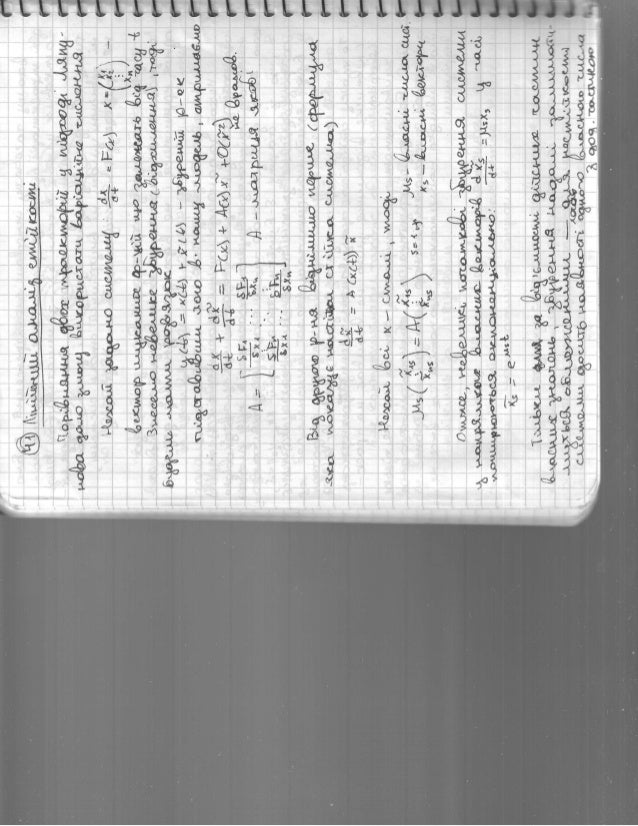 41) Лінійний аналіз стійкості
Порівняння двох траєкторій у підході Ляпу-
нова дало змогу використати варіаційне числення
Нехай задано систему: dx/dt = F(x) x = (x₁ ⋮ xₙ) –
вектор шуканих ф-цій що залежать від часу t
Внесемо невелике збурення (відхилення), тоді
будемо мати розв'язок
y(t) = x(t) + x̃(t) – збурений р-ок
підставивши його в нашу модель, отримаємо
dx/dt + dx̃/dt = F(x) + A(x)x̃ + O(x̃²)
не врахов.
A = [δF₁/δx₁ ... δF₁/δxₙ ⋮ δFₙ/δx₁ ... δFₙ/δxₙ] A – матриця якобі
Від другого р-ня віднімимо перше (формула
яка показує наскільки стійка система)
dx̃/dt = A(x(t)) x̃
Нехай всі x – сталі, тоді
μs (x̃₁s ⋮ x̃ₙs) = A (x̃₁s ⋮ x̃ₙs) s = 1,n μs – власні числа сис.
xs – власні вектори
Отже, невеликі початкові збурення системи
у напрямкові власних векторів dx̃s/dt = μs x̃s у часі
поширюються експоненціально:
x̃s = e^μst
Тільки за від'ємності дійсних частин
власних значень, збурення надалі залишати-
муться обмеженими для нестійкості
системи досить наявності одного власного числа
з дод. частиною